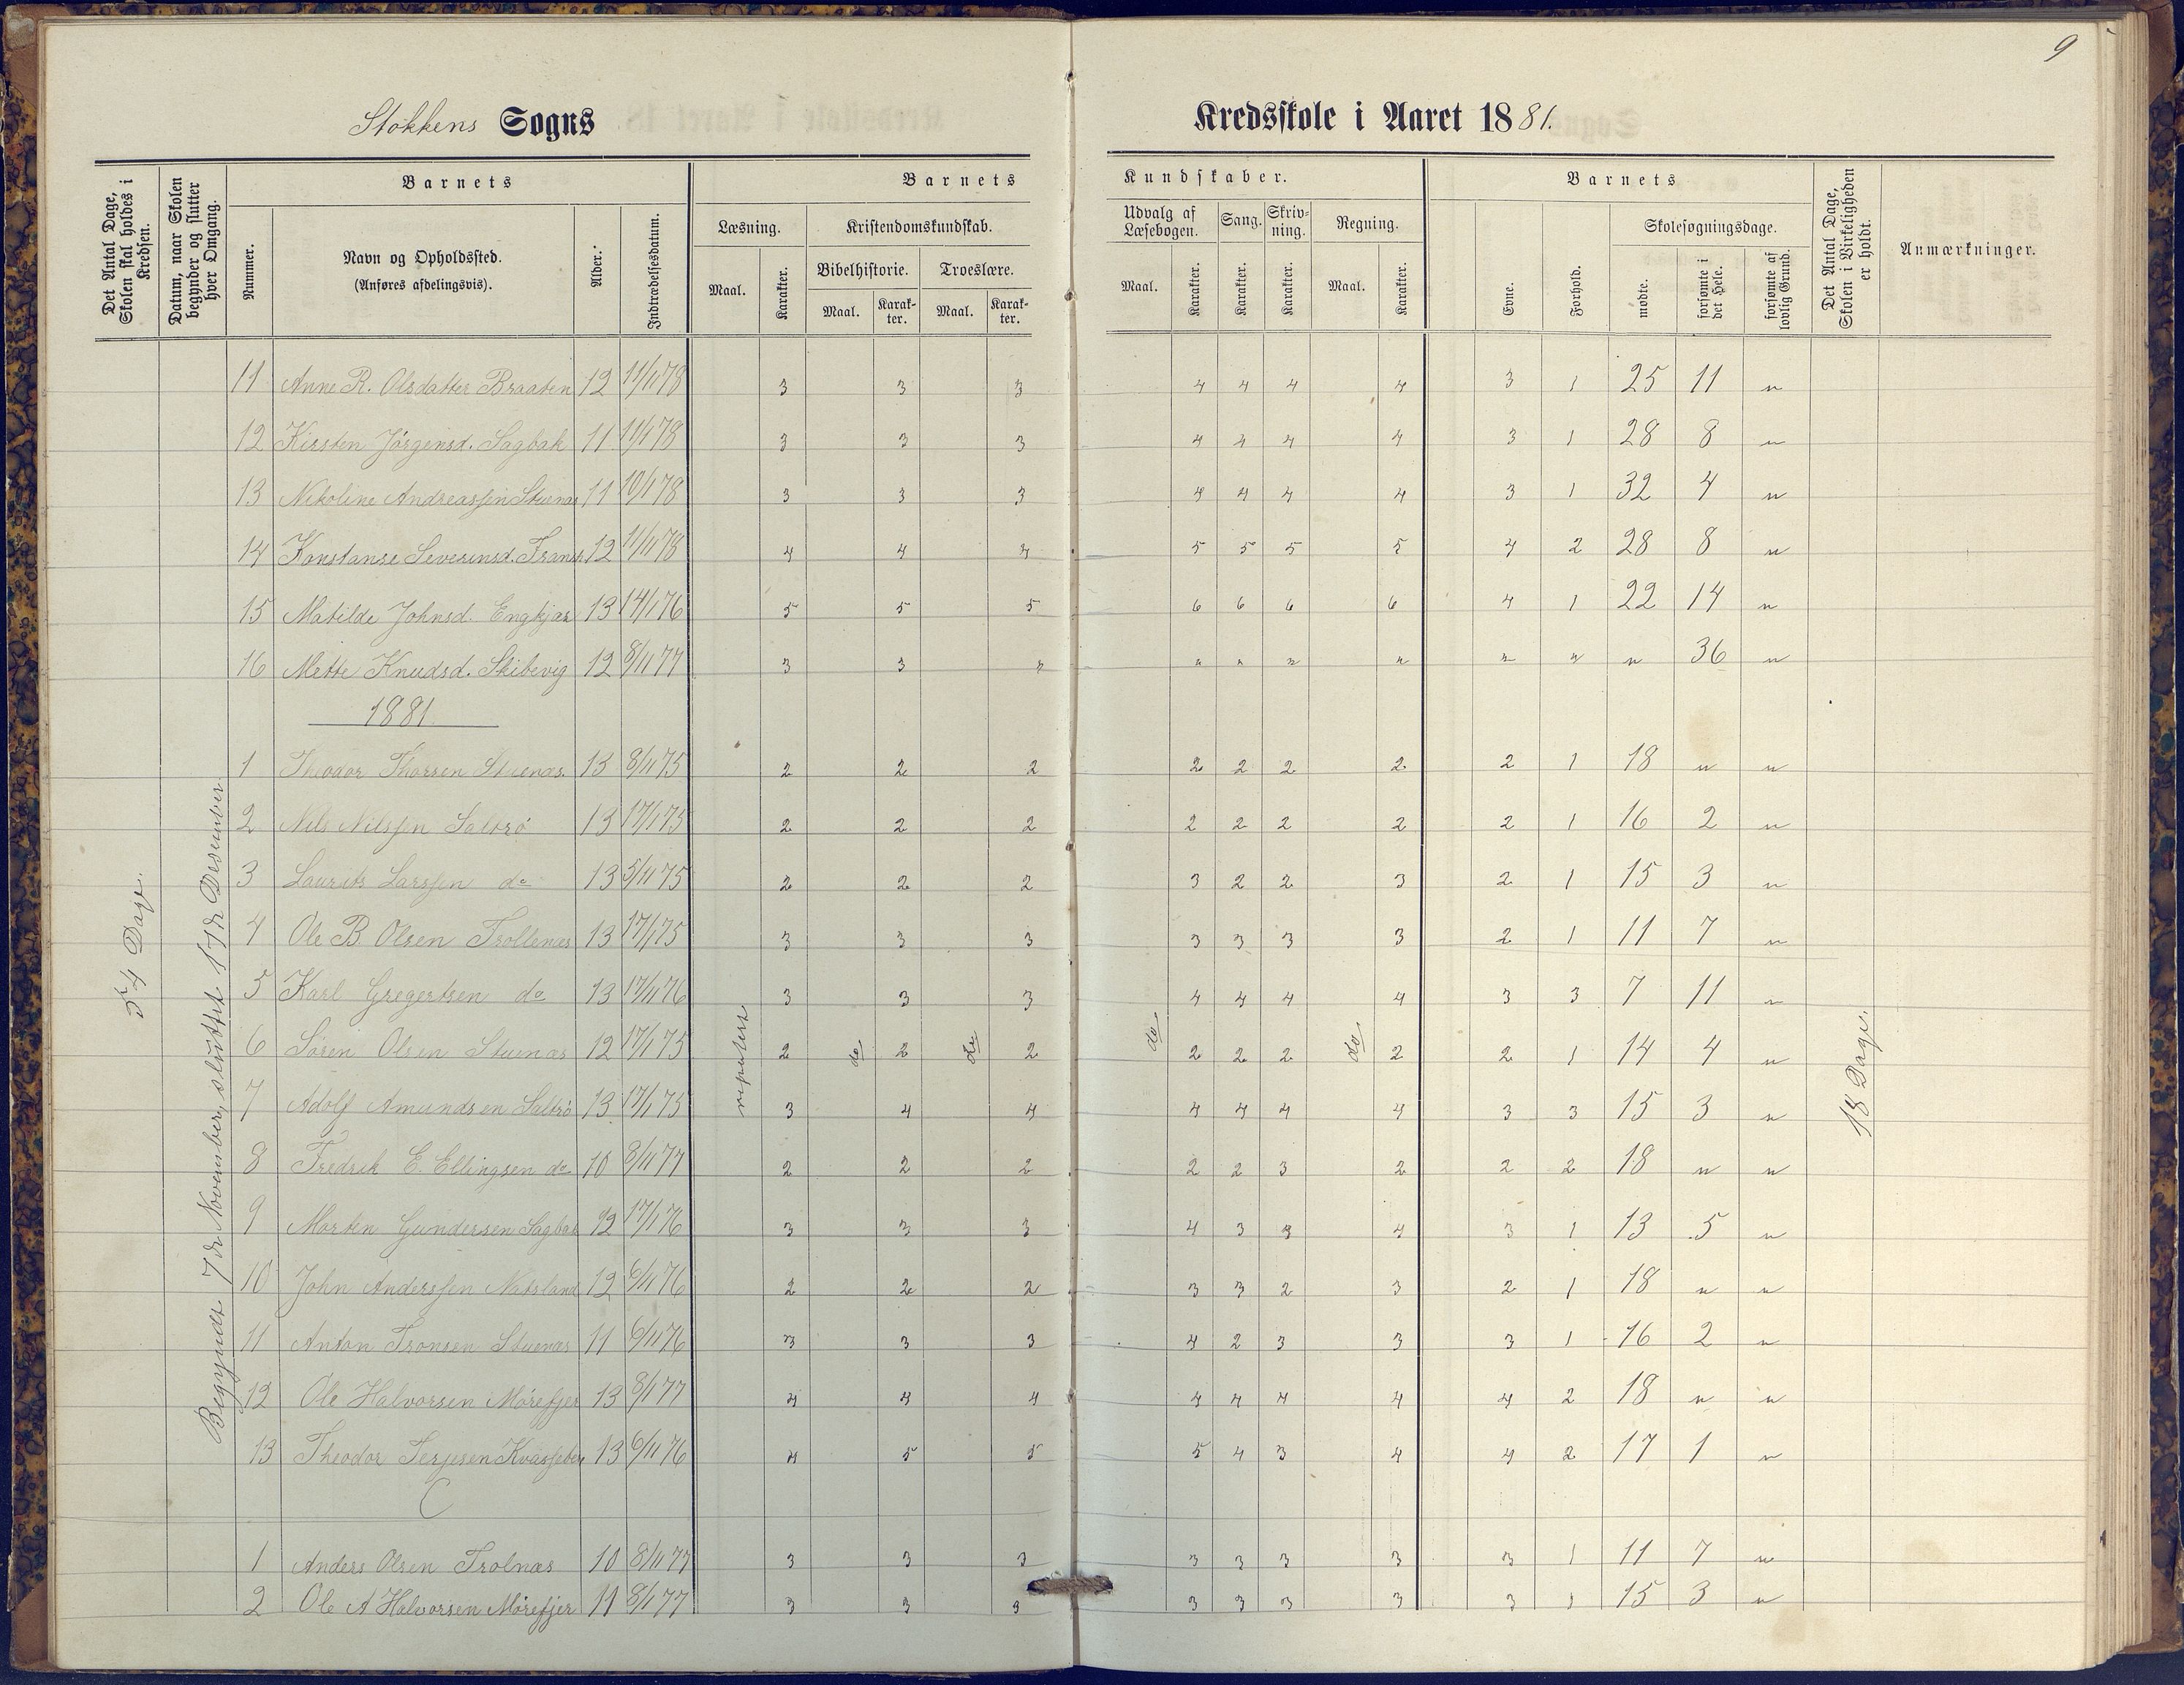 9
Stokkens Sogns Kredsskole i Aaret 1881.
Det Antal Dage, Skolen skal holdes i Kredsen.
Datum, naar Skolen begynder og slutter hver Omgang.
Barnets
Nummer.
Navn og Opholdssted.
(Anføres afdelingsvis).
Alder.
Indtrædelsesdatum.
Barnets Kundskaber.
Læsning.
Maal. Karakter.
Kristendomskundskab.
Bibelhistorie. Troeslære.
Maal. Karakter. Maal. Karakter.
Udvalg af Læsebogen.
Maal. Karakter.
Sang.
Karakter.
Skrivning.
Karakter.
Regning.
Maal. Karakter.
Barnets
Evne. Forhold.
Skolesøgningsdage.
mødte. forsømte i det Hele. forsømte af lovlig Grund.
Det Antal Dage, Skolen i Virkeligheden er holdt.
Anmærkninger.
11 Anne R. Olsdatter Braaten 12 11/11 78 3 3 3 4 4 4 4 3 1 25 11 "
12 Kirsten Jørgensd. Sagbak 11 11/1 78 3 3 3 4 4 4 4 3 1 28 8 "
13 Nikoline Andreassen Stuenæs 11 10/1 78 3 3 3 4 4 4 4 3 1 32 4 "
14 Konstanse Severinsd. 12 11/11 78 4 4 4 5 5 5 5 4 2 28 8 "
15 Matilde Johnsd. Engkjær 13 14/1 76 5 5 5 6 6 6 6 4 1 22 14 "
16 Mette Knudsd. Skibevig 12 8/11 77 3 3 " " " " " " " " 36 "
1881
1 Theodor Thorsen Stuenæs 13 8/11 75 2 2 2 2 2 2 2 2 1 18 " "
2 Nils Nilssen Saltrø 13 17/1 75 2 2 2 2 2 2 2 2 1 16 2 "
3 Laurits Larssen do 13 5/11 75 2 2 2 3 2 2 3 2 1 15 3 "
4 Ole B. Olsen Trollenæs 13 17/1 75 3 3 3 3 3 3 3 2 1 11 7 "
5 Karl Gregertsen do 13 17/11 76 3 3 3 4 4 4 4 3 3 7 11 "
6 Søren Olsen Stuenæs 12 17/1 75 2 2 2 2 2 2 2 2 1 14 4 "
7 Adolf Amundsen Saltrø 13 17/1 75 3 4 4 4 4 4 4 3 3 15 3 "
8 Fredrik E. Ellingsen do 10 8/11 77 2 2 2 2 2 3 2 2 2 18 " "
9 Morten Gundersen Sagbak 12 17/1 76 3 3 3 4 3 3 4 3 1 13 5 "
10 John Anderssen Natsland 12 6/11 76 2 2 2 3 3 2 3 2 1 18 " "
11 Anton Tronsen Stuenæs 11 6/11 76 3 3 3 4 2 3 3 3 1 16 2 "
12 Ole Halvorsen Mørefjer 13 8/1 77 4 4 4 4 4 4 4 4 2 18 " "
13 Theodor Terjesen 13 6/11 76 4 5 5 5 4 3 4 4 2 17 1 "
C
1 Anders Olsen Trolnæs 10 8/11 77 3 3 3 3 3 3 3 3 1 11 7 "
2 Ole A Halvorsen Mørefjer 11 8/1 77 3 3 3 3 3 3 3 3 1 15 3 "
54 Dage.
Begyndt 7de November, sluttet 17de Desember
repetert do do do do
18 Dage.